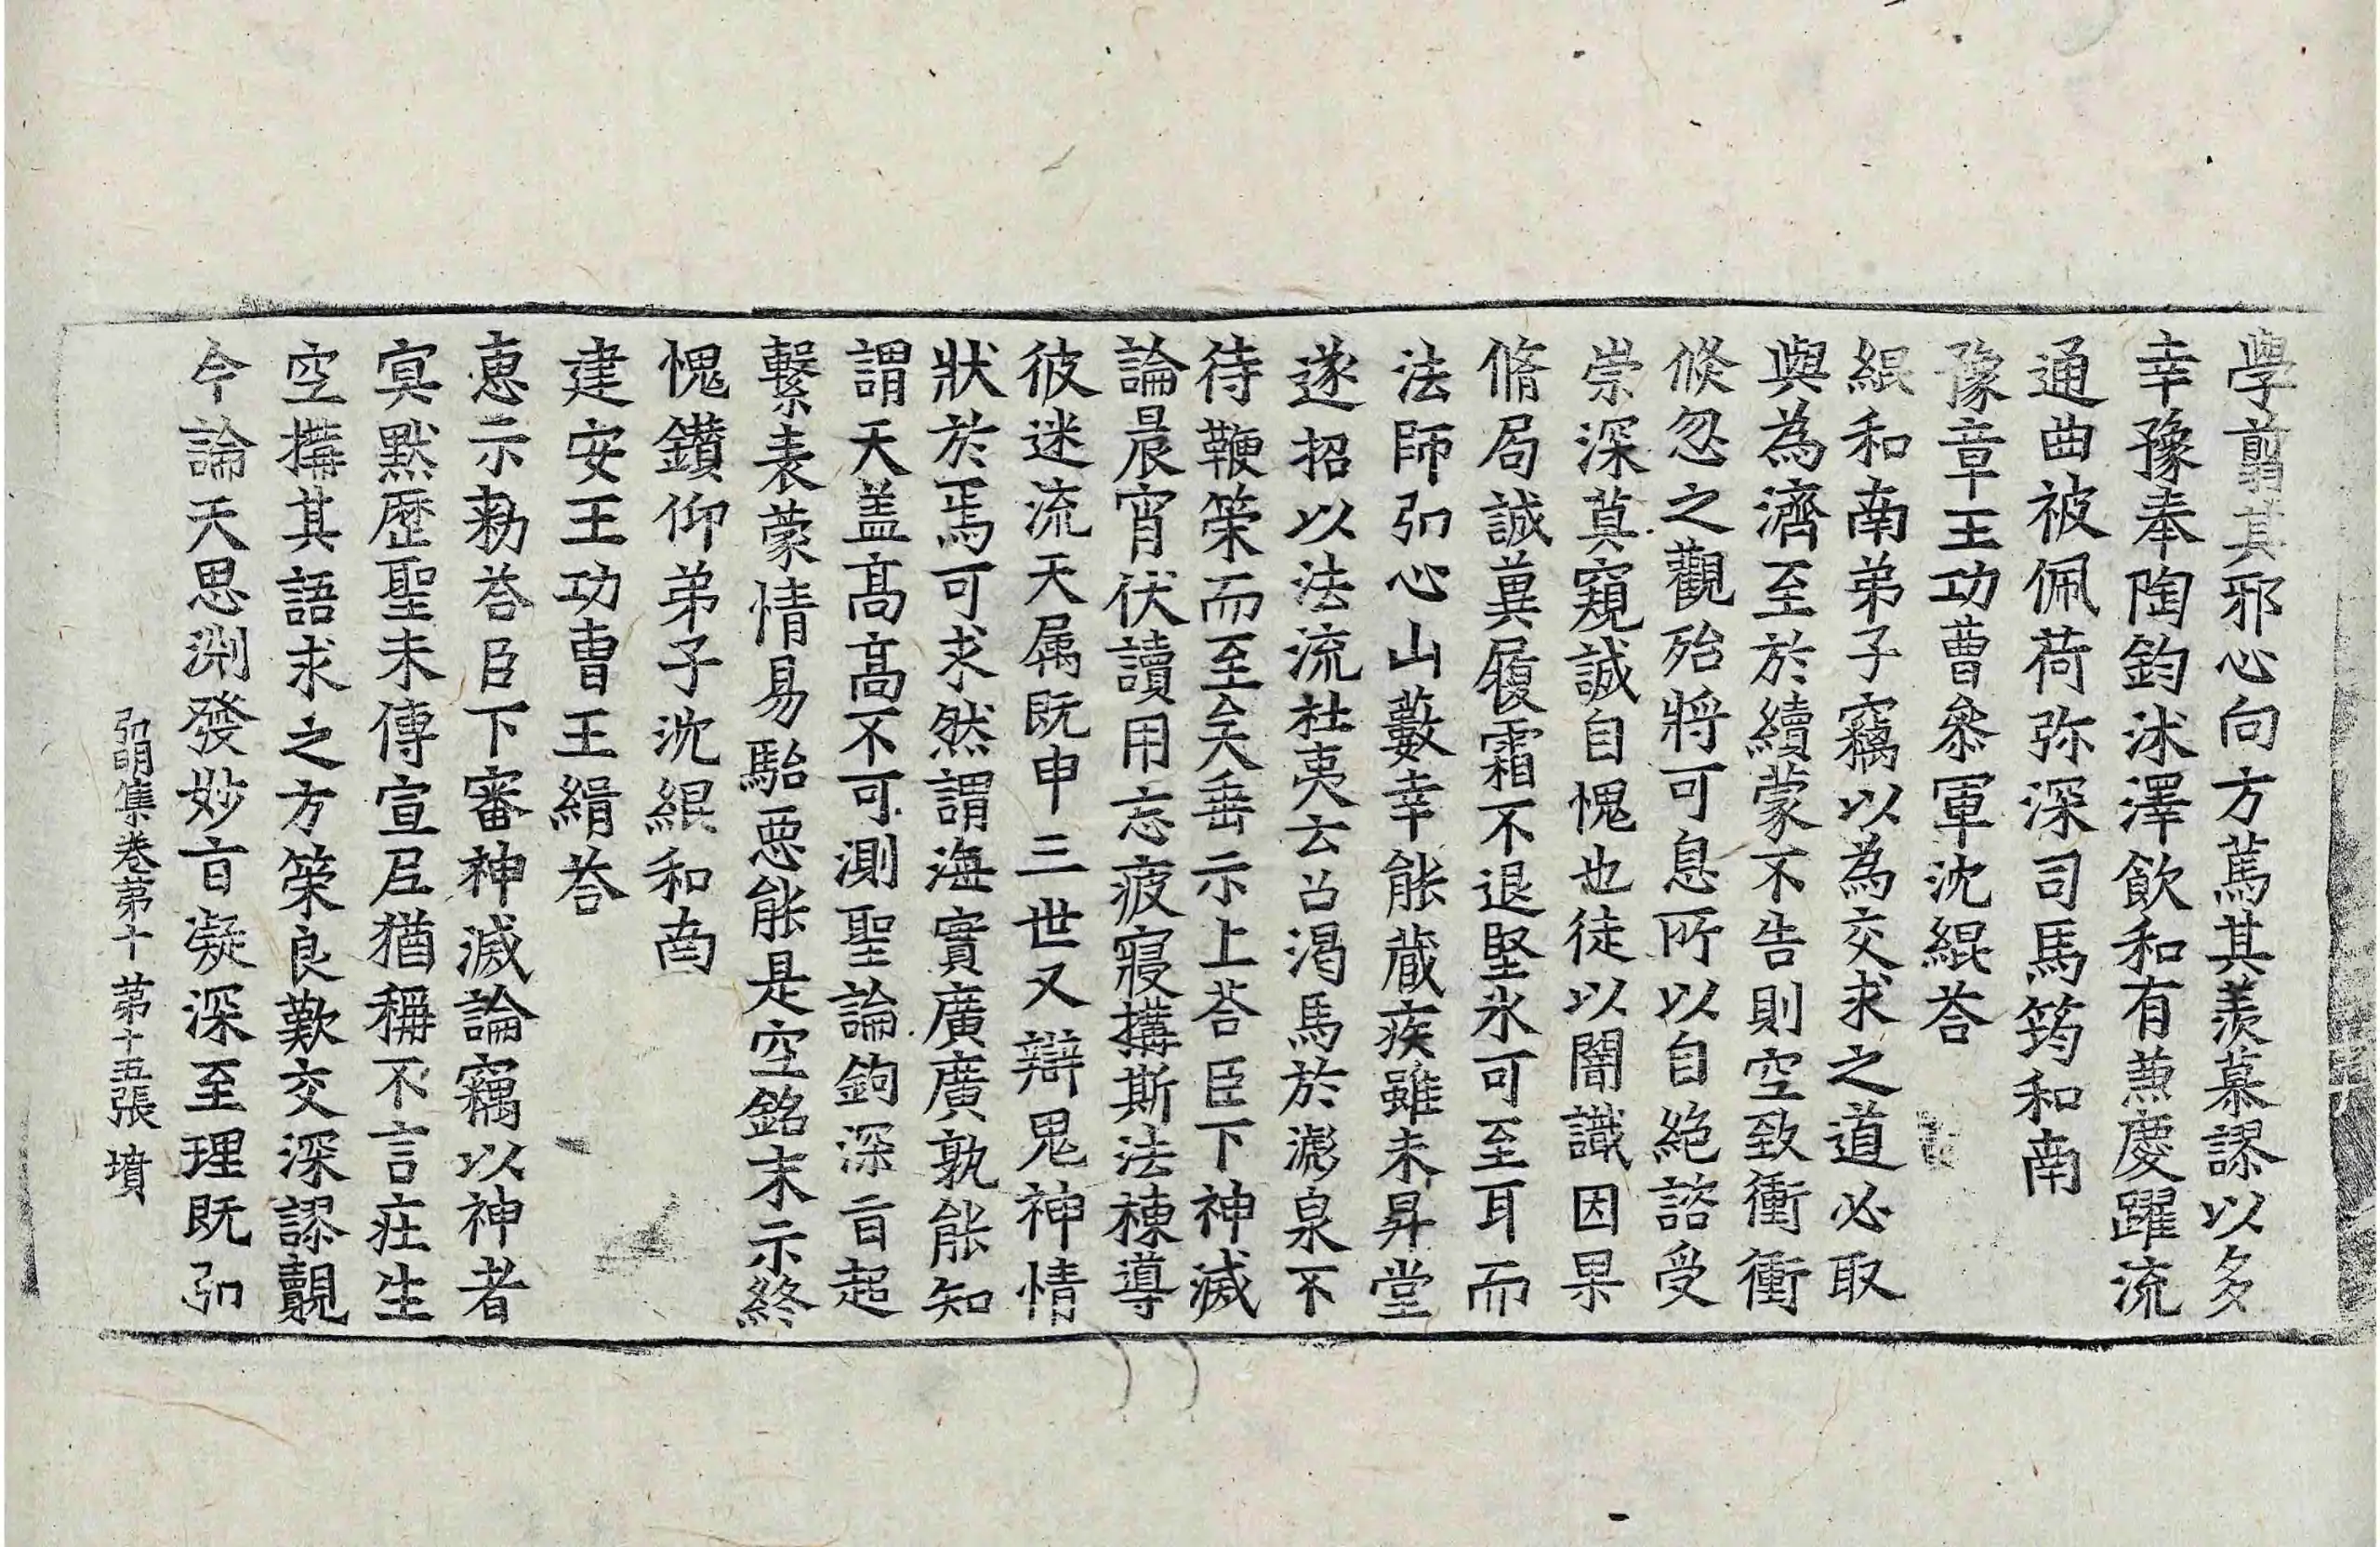 學翦其邪心向方蔿其羨慕謬以多
幸豫奉陶鈞沭澤飲和有蒸慶躍流
通曲被佩荷弥深司馬筠和南
豫章王功曹叅軍沈緄荅
緄和南弟子竊以為交求之道必取
與為濟至於續蒙不告則空致衝衝
倐忽之觀殆將可息所以自絶諮受
崇深莫窺誠自愧也徒以闇識因果
脩局誠兾履霜不退堅氷可至耳而
法師弘心山藪幸能蔵疾雖未昇堂
遂招以法流杜夷云召渴馬於滮泉不
待鞭筞而至矣垂示上荅臣下神滅
論晨宵伏讀用忘疲寢搆斯法棟導
彼迷流天属既申三世又辯鬼神情
狀於焉可求然謂海實廣廣孰能知
謂天盖髙髙不可測聖論鉤深盲起
繫表蒙情易駘惡能是空銘末示終
愧鑽仰弟子沈緄和南
建安王功曹王緝荅
恵示勑荅臣下審神滅論竊以神者
㝠黙歴聖未傳宣𡰱猶稱不言㽵生
空搆其語求之方筞良歎交深謬覿
今論天思渕發妙盲凝深至理既弘
弘明集卷第十　第十五張　墳